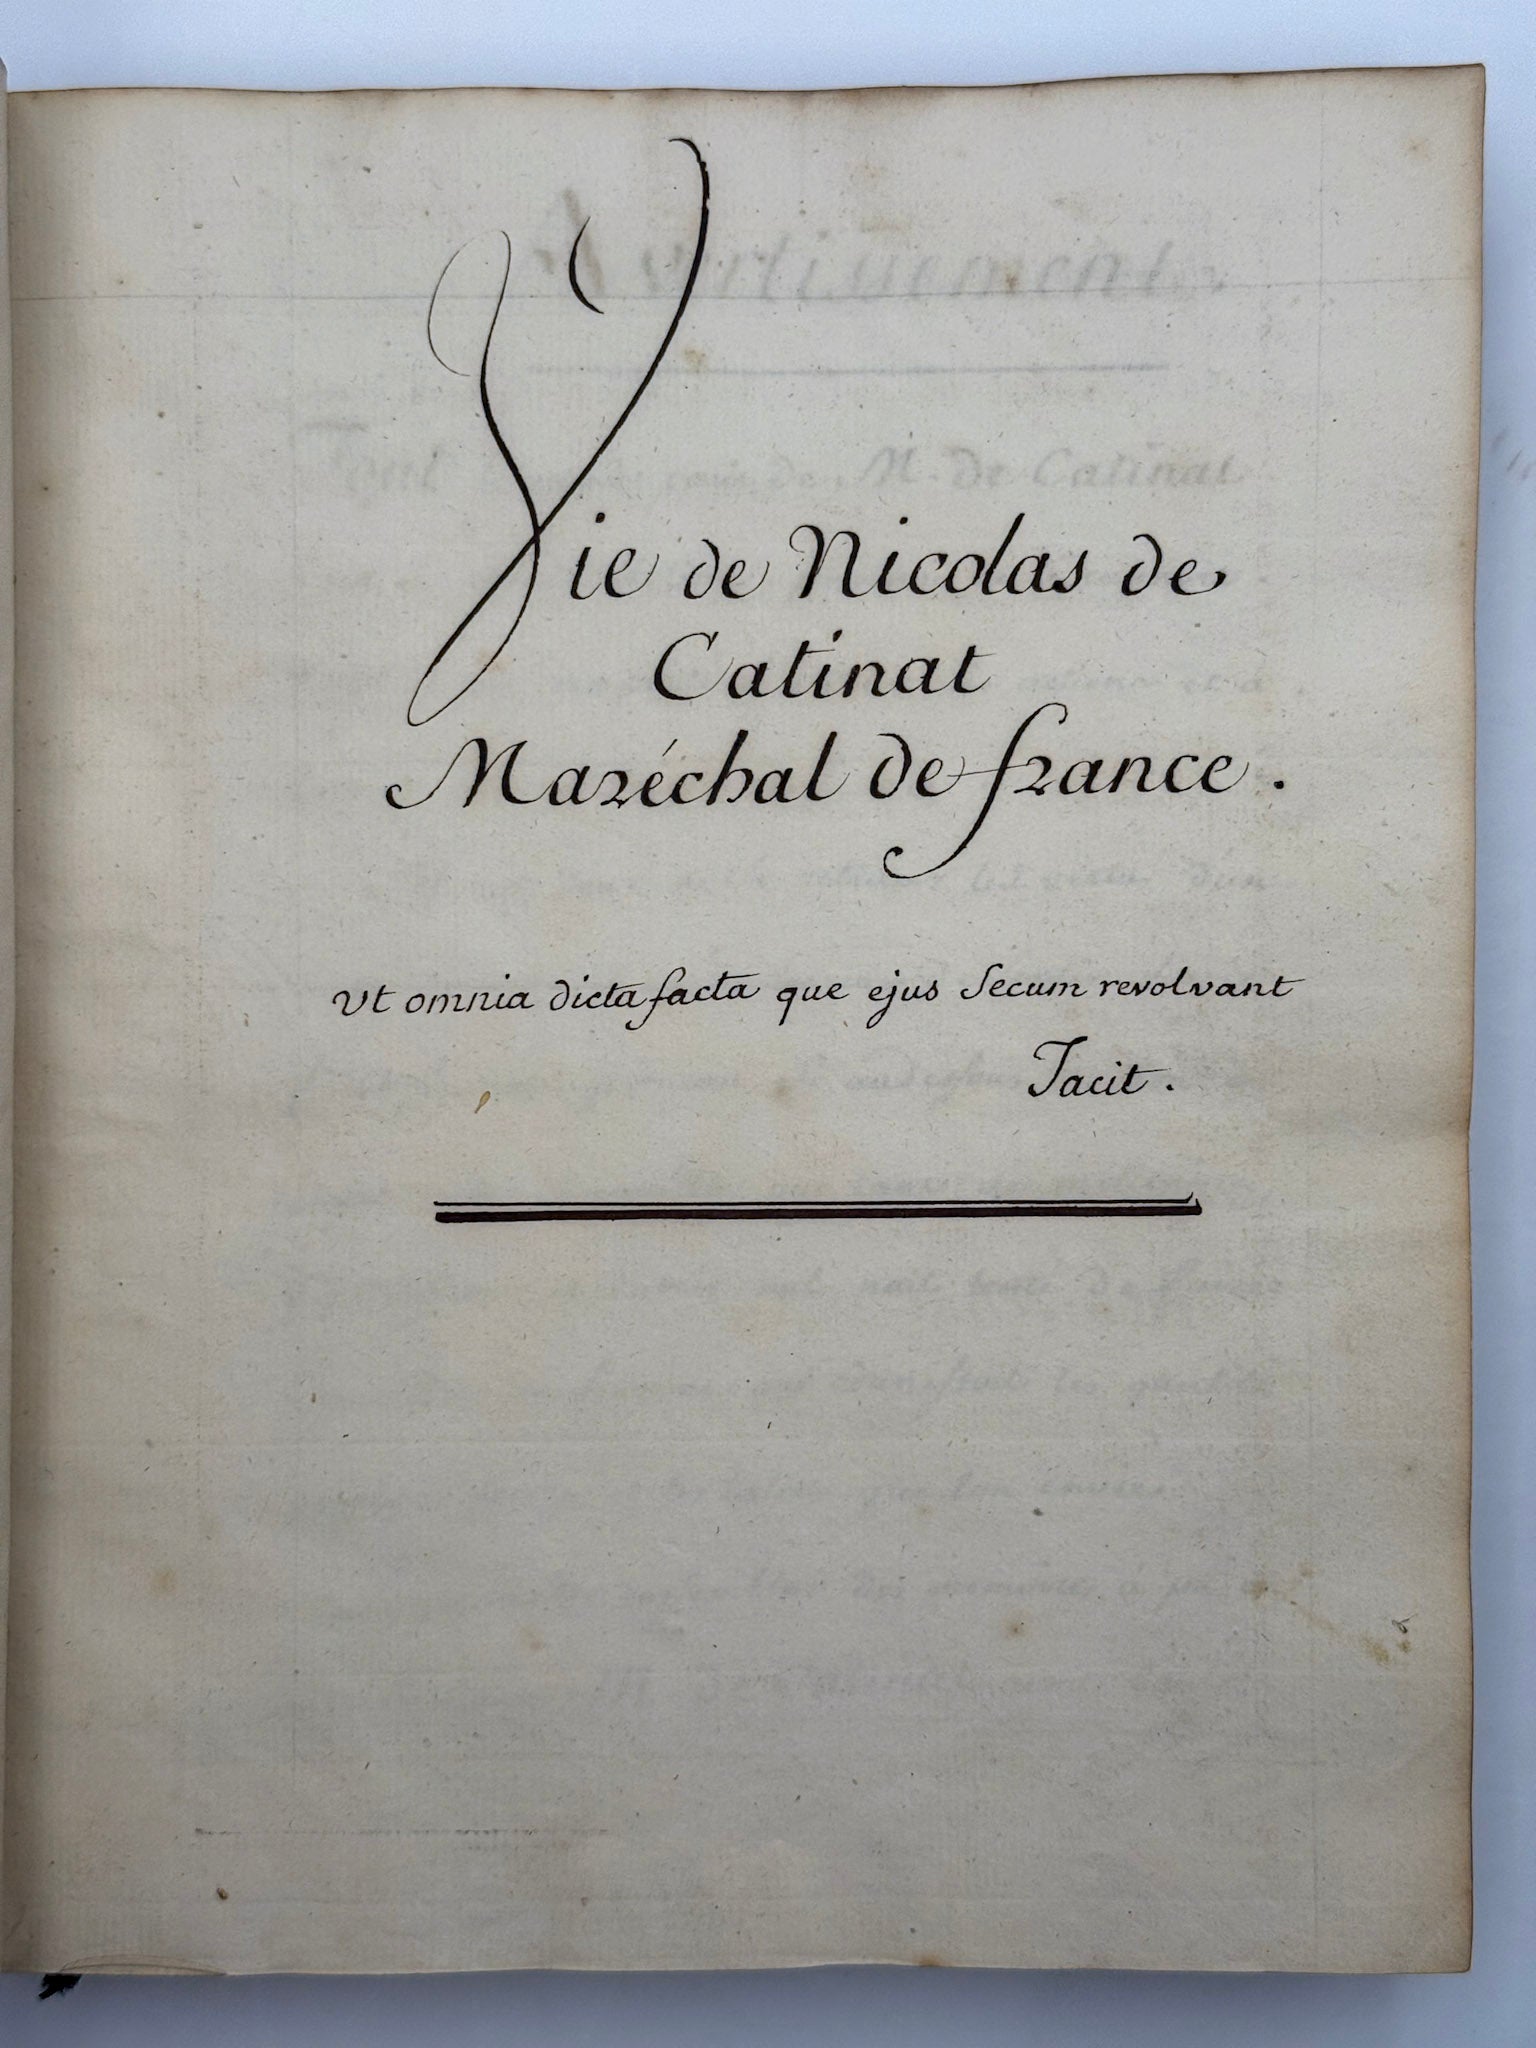 Vie de Nicolas de
Catinat
Maréchal de france.
Ut omnia dicta facta que ejus secum revolvant
Tacit.